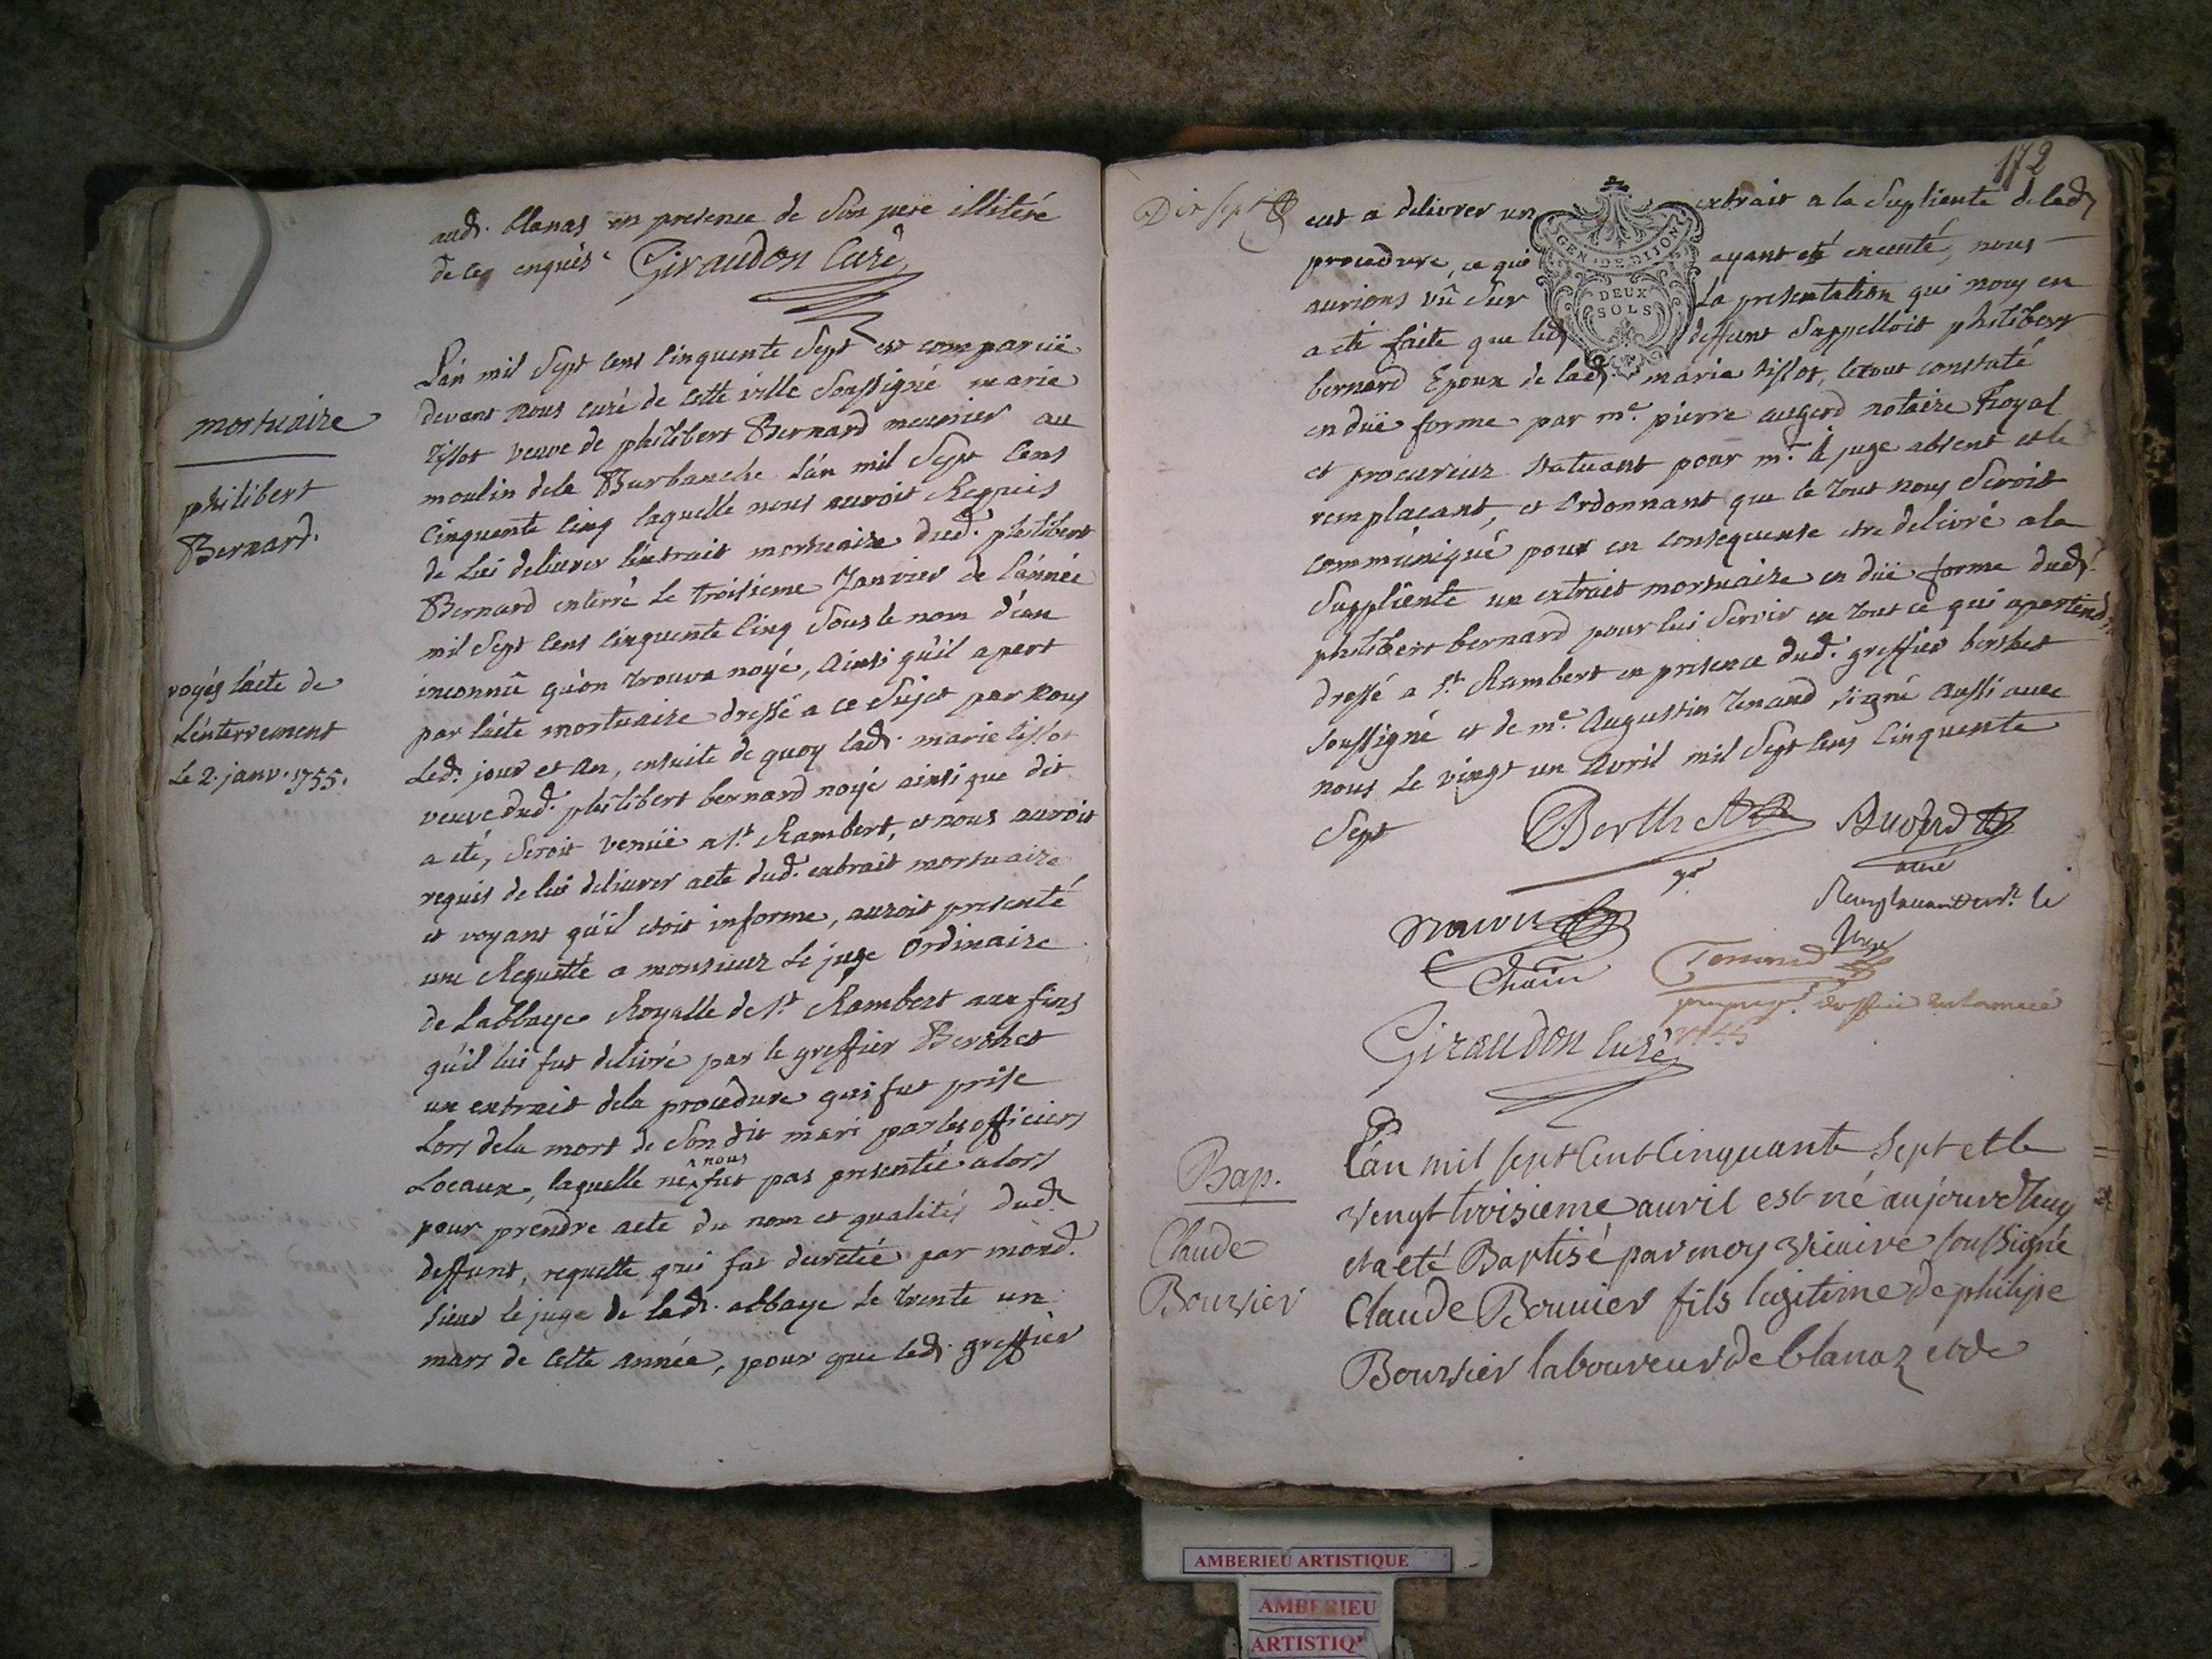 aud. blanas en presence de Son pere illiteré
de ce enquis Giraudon Curé
mortuaire
philibert
Bernard.
voyés l'acte de
L'enterrement
Le 2. janv. 1755.
L'an mil Sept Cens Cinquente Sept est comparüe
devant nous curé de cette ville Soussigné marie
tissot veuve de philibert Bernard meunier au
moulin dela Burbanche L'an mil Sept Cens
Cinquente Cinq laquelle nous auroit Requis
de Lui delivrer l'extrait mortuaire dud. philibert
Bernard enterré Le troisieme Janvier de l'année
mil Sept Cens Cinquente Cinq Sous le nom d'un
inconnû qu'on trouva noyé, Ainsi qu'il apert
par l'acte mortuaire dressé a ce Sujet par nous
Led. jour et an, ensuite de quoy lad. marie tissot
veuve dud. philibert bernard noyé ainsi que dit
a eté, Seroit venüe a St. Rambert, et nous auroit
requis de lui delivrer acte dud. extrait mortuaire
et voyant qu'il etoit informe, auroit presenté
une Requette a monsieur Le juge Ordinaire
de Labbaye Royalle de St. Rambert aux fins
qu'il lui fut delivré par le greffier Berthet
un extrait dela procedure qui fut prise
Lors dela mort de Son dit mari par les officiers
nous
Locaux, laquelle ne fut pas presentée alors
pour prendre acte du nom et qualités dud.
deffunt, requette qui fut decretée par mond.
sieur le juge de lad. abbaye Le trente un
mars de cette année, pour que led. greffier
172
Dix sept
eut a delivrer un extrait a la Supliente de lad.
procedure, ce qui ayant eté executé, nous
aurions vû Sur La presentation qui nous en
a eté faite que led. deffunt S'appelloit philibert
GEN. DE DIJON
DEUX
SOLS
bernard Epoux de lad. marie tissot, le tout constaté
en düe forme par me. pierre augerd notaire Royal
et procureur statuant pour mr. le juge absent et le
remplacant, et Ordonnant que le tout nous Seroit
communiqué pour en consequense etre delivré a la
Suppliente un extrait mortuaire en düe forme dud.
philibert bernard pour lui Servir en tout ce qui apartiend.
dressé a St. Rambert en presence dud. greffier berthet
soussigné et de me. Augustin tenand, signé Aussi avec
nous Le vingt un Avril mil Sept Cens Cinquente
Sept
Berthet Augerd
gr
Remplacant mr. le
juge
Tenand
Giraudon Curé
Bap.
Claude
Bouvier
L'an mil sept Cent Cinquante Sept et le
vengt troisieme auvril est né aujourd'huy
et a eté Baptisé par moy vicaire soussigné
Claude Bouvier fils legitime de philipe
Bouvier laboureur de blanaz et de
AMBERIEU ARTISTIQUE
AMBERIEU
ARTISTIQ